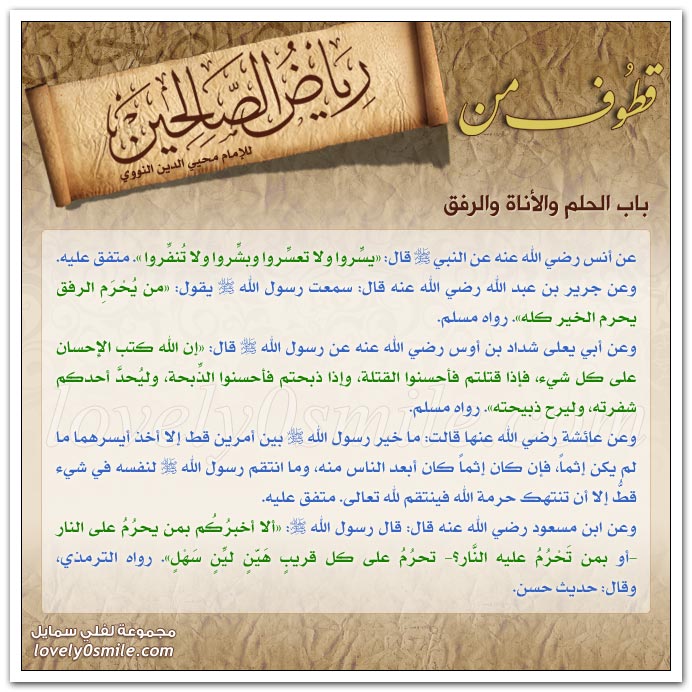 قطوف من
رياض الصالحين
للإمام محيي الدين النووي
باب الحلم والأناة والرفق
عن أنس رضي الله عنه عن النبي ﷺ قال: «يسِّروا ولا تعسِّروا وبشِّروا ولا تُنفِّروا». متفق عليه.
وعن جرير بن عبد الله رضي الله عنه قال: سمعت رسول الله ﷺ يقول: «من يُحْرَمِ الرفق
يحرم الخير كله». رواه مسلم.
وعن أبي يعلى شداد بن أوس رضي الله عنه عن رسول الله ﷺ قال: «إن الله كتب الإحسان
على كل شيء، فإذا قتلتم فأحسنوا القتلة، وإذا ذبحتم فأحسنوا الذِّبحة، وليُحدَّ أحدكم
شفرته، وليرح ذبيحته». رواه مسلم.
وعن عائشة رضي الله عنها قالت: ما خير رسول الله ﷺ بين أمرين قط إلا أخذ أيسرهما ما
لم يكن إثماً، فإن كان إثماً كان أبعد الناس منه، وما انتقم رسول الله ﷺ لنفسه في شيء
قطُّ إلا أن تنتهك حرمة الله فينتقم لله تعالى. متفق عليه.
وعن ابن مسعود رضي الله عنه قال: قال رسول الله ﷺ: «ألا أخبرُكُم بمن يحرُمُ على النار
-أو بمن تَحْرُمُ عليه النَّار؟- تحرُمُ على كل قريبٍ هَيّنٍ ليِّنٍ سَهْلٍ». رواه الترمذي،
وقال: حديث حسن.
lovely0smile.com
مجموعة لفلي سمايل
lovely0smile.com